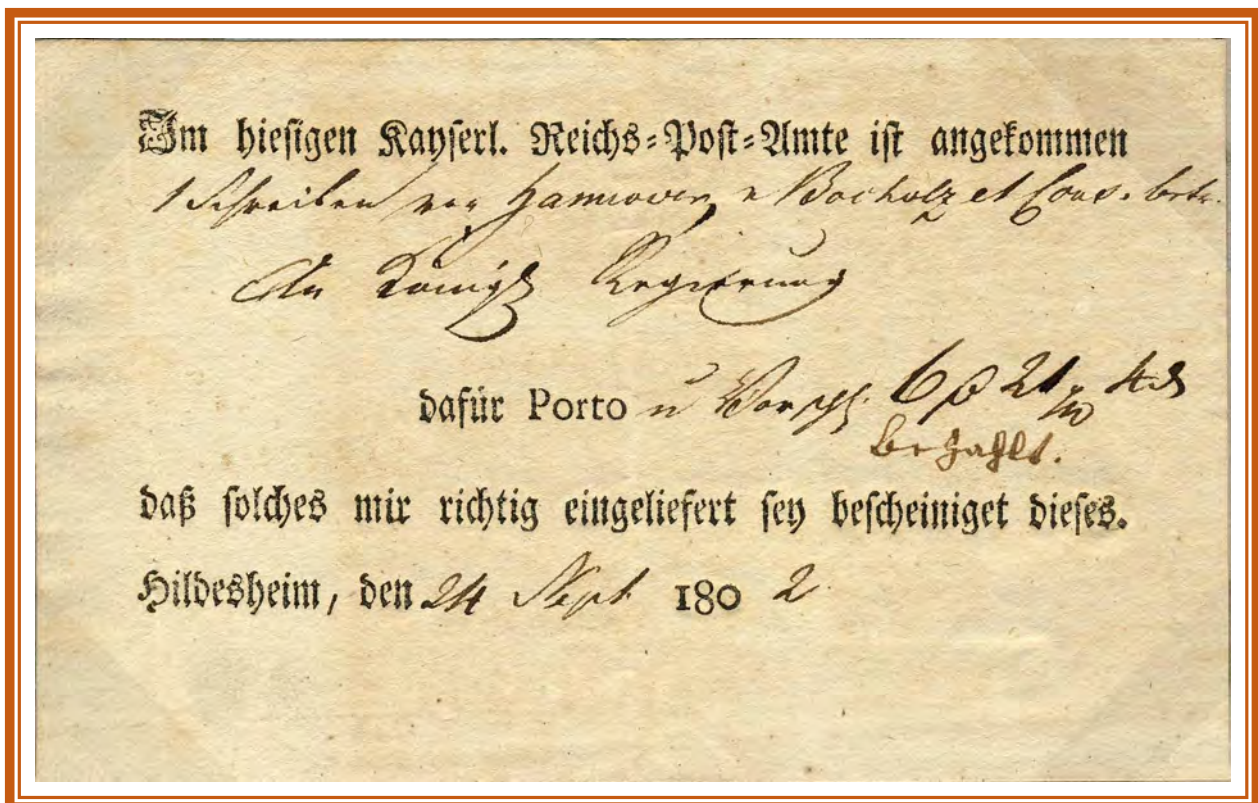 Im hiesigen Kayserl. Reichs-Post-Amte ist angekommen
1 Schreiben von Hannover, v Bocholz et Cons. betr.
An Königl Regierung
dafür Porto u Vorsch. 6 21 4
bezahlt.
daß solches mir richtig eingeliefert sey bescheiniget dieses.
Hildesheim, den 24 Sept 1802